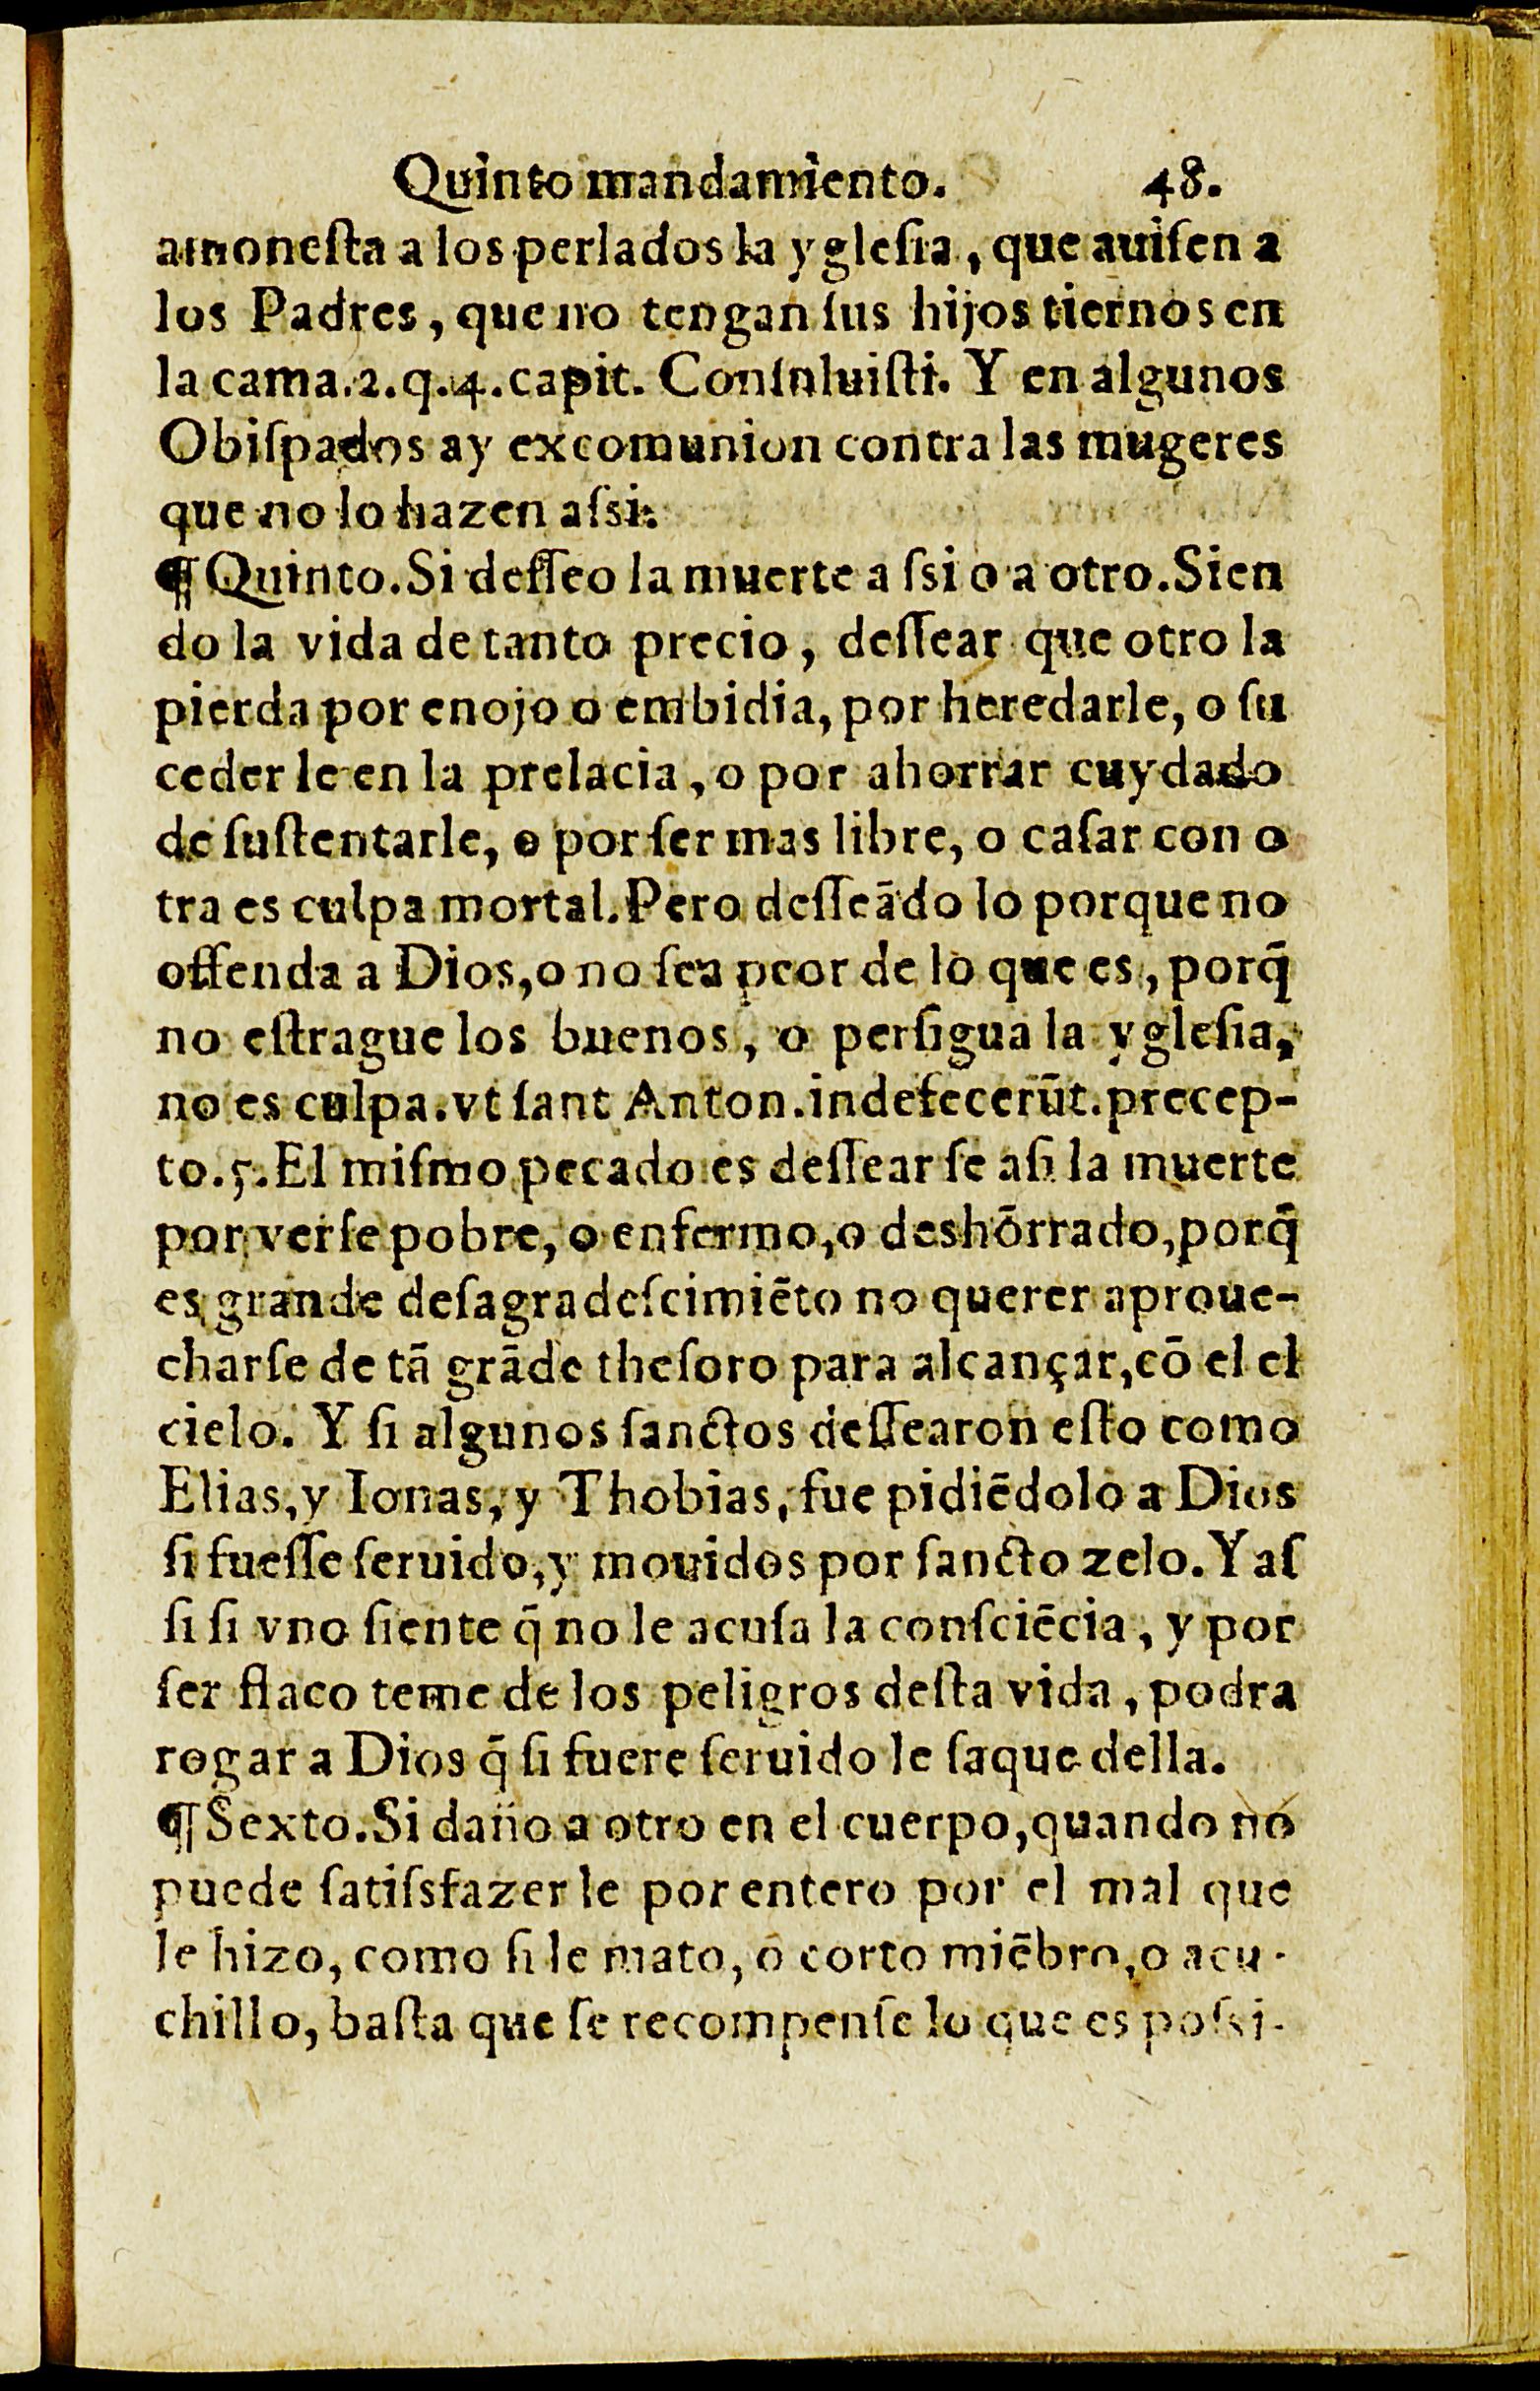 Quinto mandamiento. 48.
amoneſta a los perlados la ygleſia, que auiſen a
los Padres, que no tengan ſus hijos tiernos en
la cama.2.q.4.capit. Conſnluiſti. Y en algunos
Obiſpados ay excomunion contra las mugeres
que no lo hazen aſsi.
¶ Quinto. Si deſſeo la muerte a ſsi o a otro. Sien
do la vida de tanto precio, deſſear que otro la
pierda por enojo o embidia, por heredarle, o ſu
ceder le en la prelacia, o por ahorrar cuydado
de ſuſtentarle, o por ſer mas libre, o caſar con o
tra es culpa mortal. Pero deſſeãdo lo porque no
offenda a Dios, o no ſea peor de lo que es, porq̃
no eſtrague los buenos, o perſigua la ygleſia,
no es culpa. vt ſant Anton. indefecerũt. precep-
to.5. El miſmo pecado es deſſear ſe aſi la muerte
por verſe pobre, o enfermo, o deshõrrado, porq̃
es grande deſagradeſcimiẽto no querer aproue-
charſe de tã grãde theſoro para alcançar, cõ el el
cielo. Y ſi algunos ſanctos deſſearon eſto como
Elias, y Ionas, y Thobias, fue pidiẽdolo a Dios
ſi fueſſe ſeruido, y mouidos por ſancto zelo. Y aſ
ſi ſi vno ſiente q̃ no le acuſa la conſciẽcia, y por
ſer flaco teme de los peligros deſta vida, podra
rogar a Dios q̃ ſi fuere ſeruido le ſaque della.
¶ Sexto. Si daño a otro en el cuerpo, quando no
puede ſatiſsfazer le por entero por el mal que
le hizo, como ſi le mato, o corto miẽbro, o acu-
chillo, baſta que ſe recompenſe lo que es poſsi-